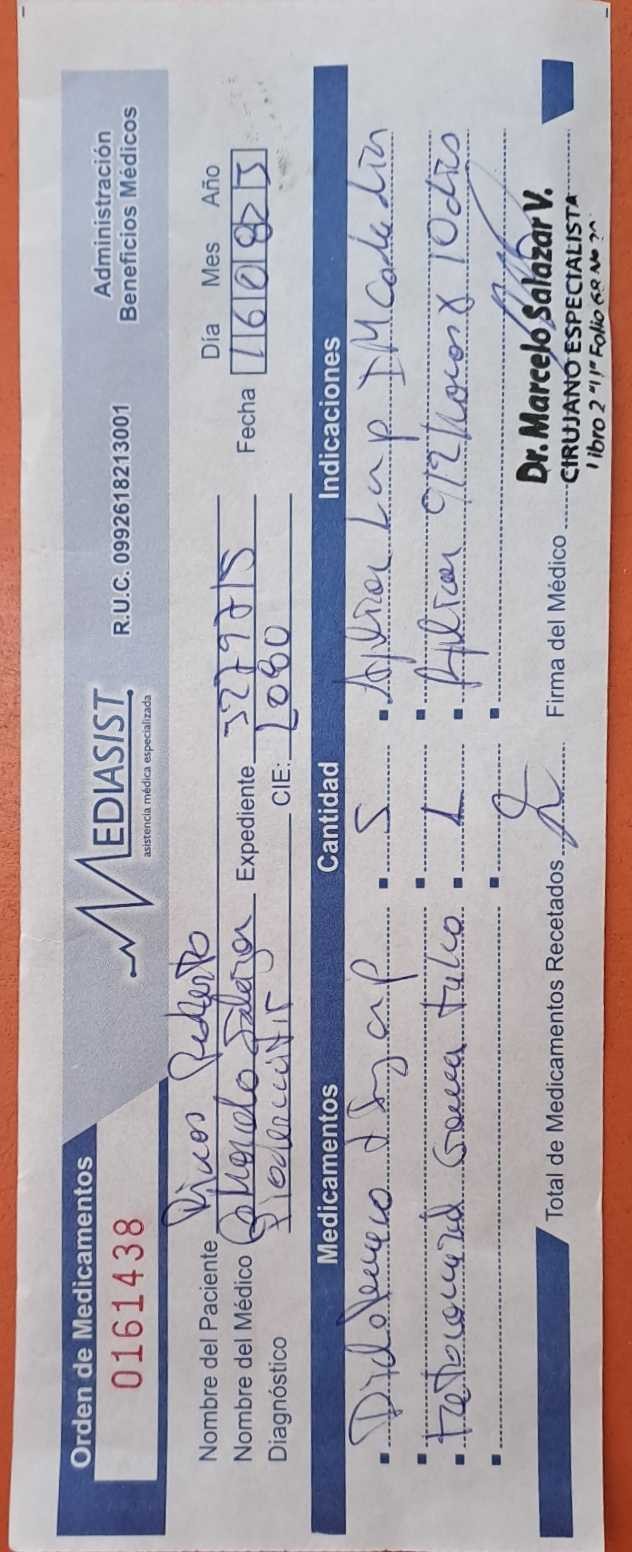 Orden de Medicamentos
0161438
MEDIASIST
asistencia médica especializada
R.U.C. 0992618213001
Administración
Beneficios Médicos
Nombre del Paciente Rivas Roberto
Nombre del Médico Marcelo Salazar Expediente
Diagnóstico CIE: L080
Día Mes Año
Fecha 16 08 23
Medicamentos Cantidad Indicaciones
Diclofenaco 5 Aplicar 1 amp IM cada día
Crema tubo 1 Aplicar c/12 horas x 10 días
Total de Medicamentos Recetados 2 Firma del Médico
Dr. Marcelo Salazar V.
CIRUJANO ESPECIALISTA
Libro 2 "11" Folio 68 No